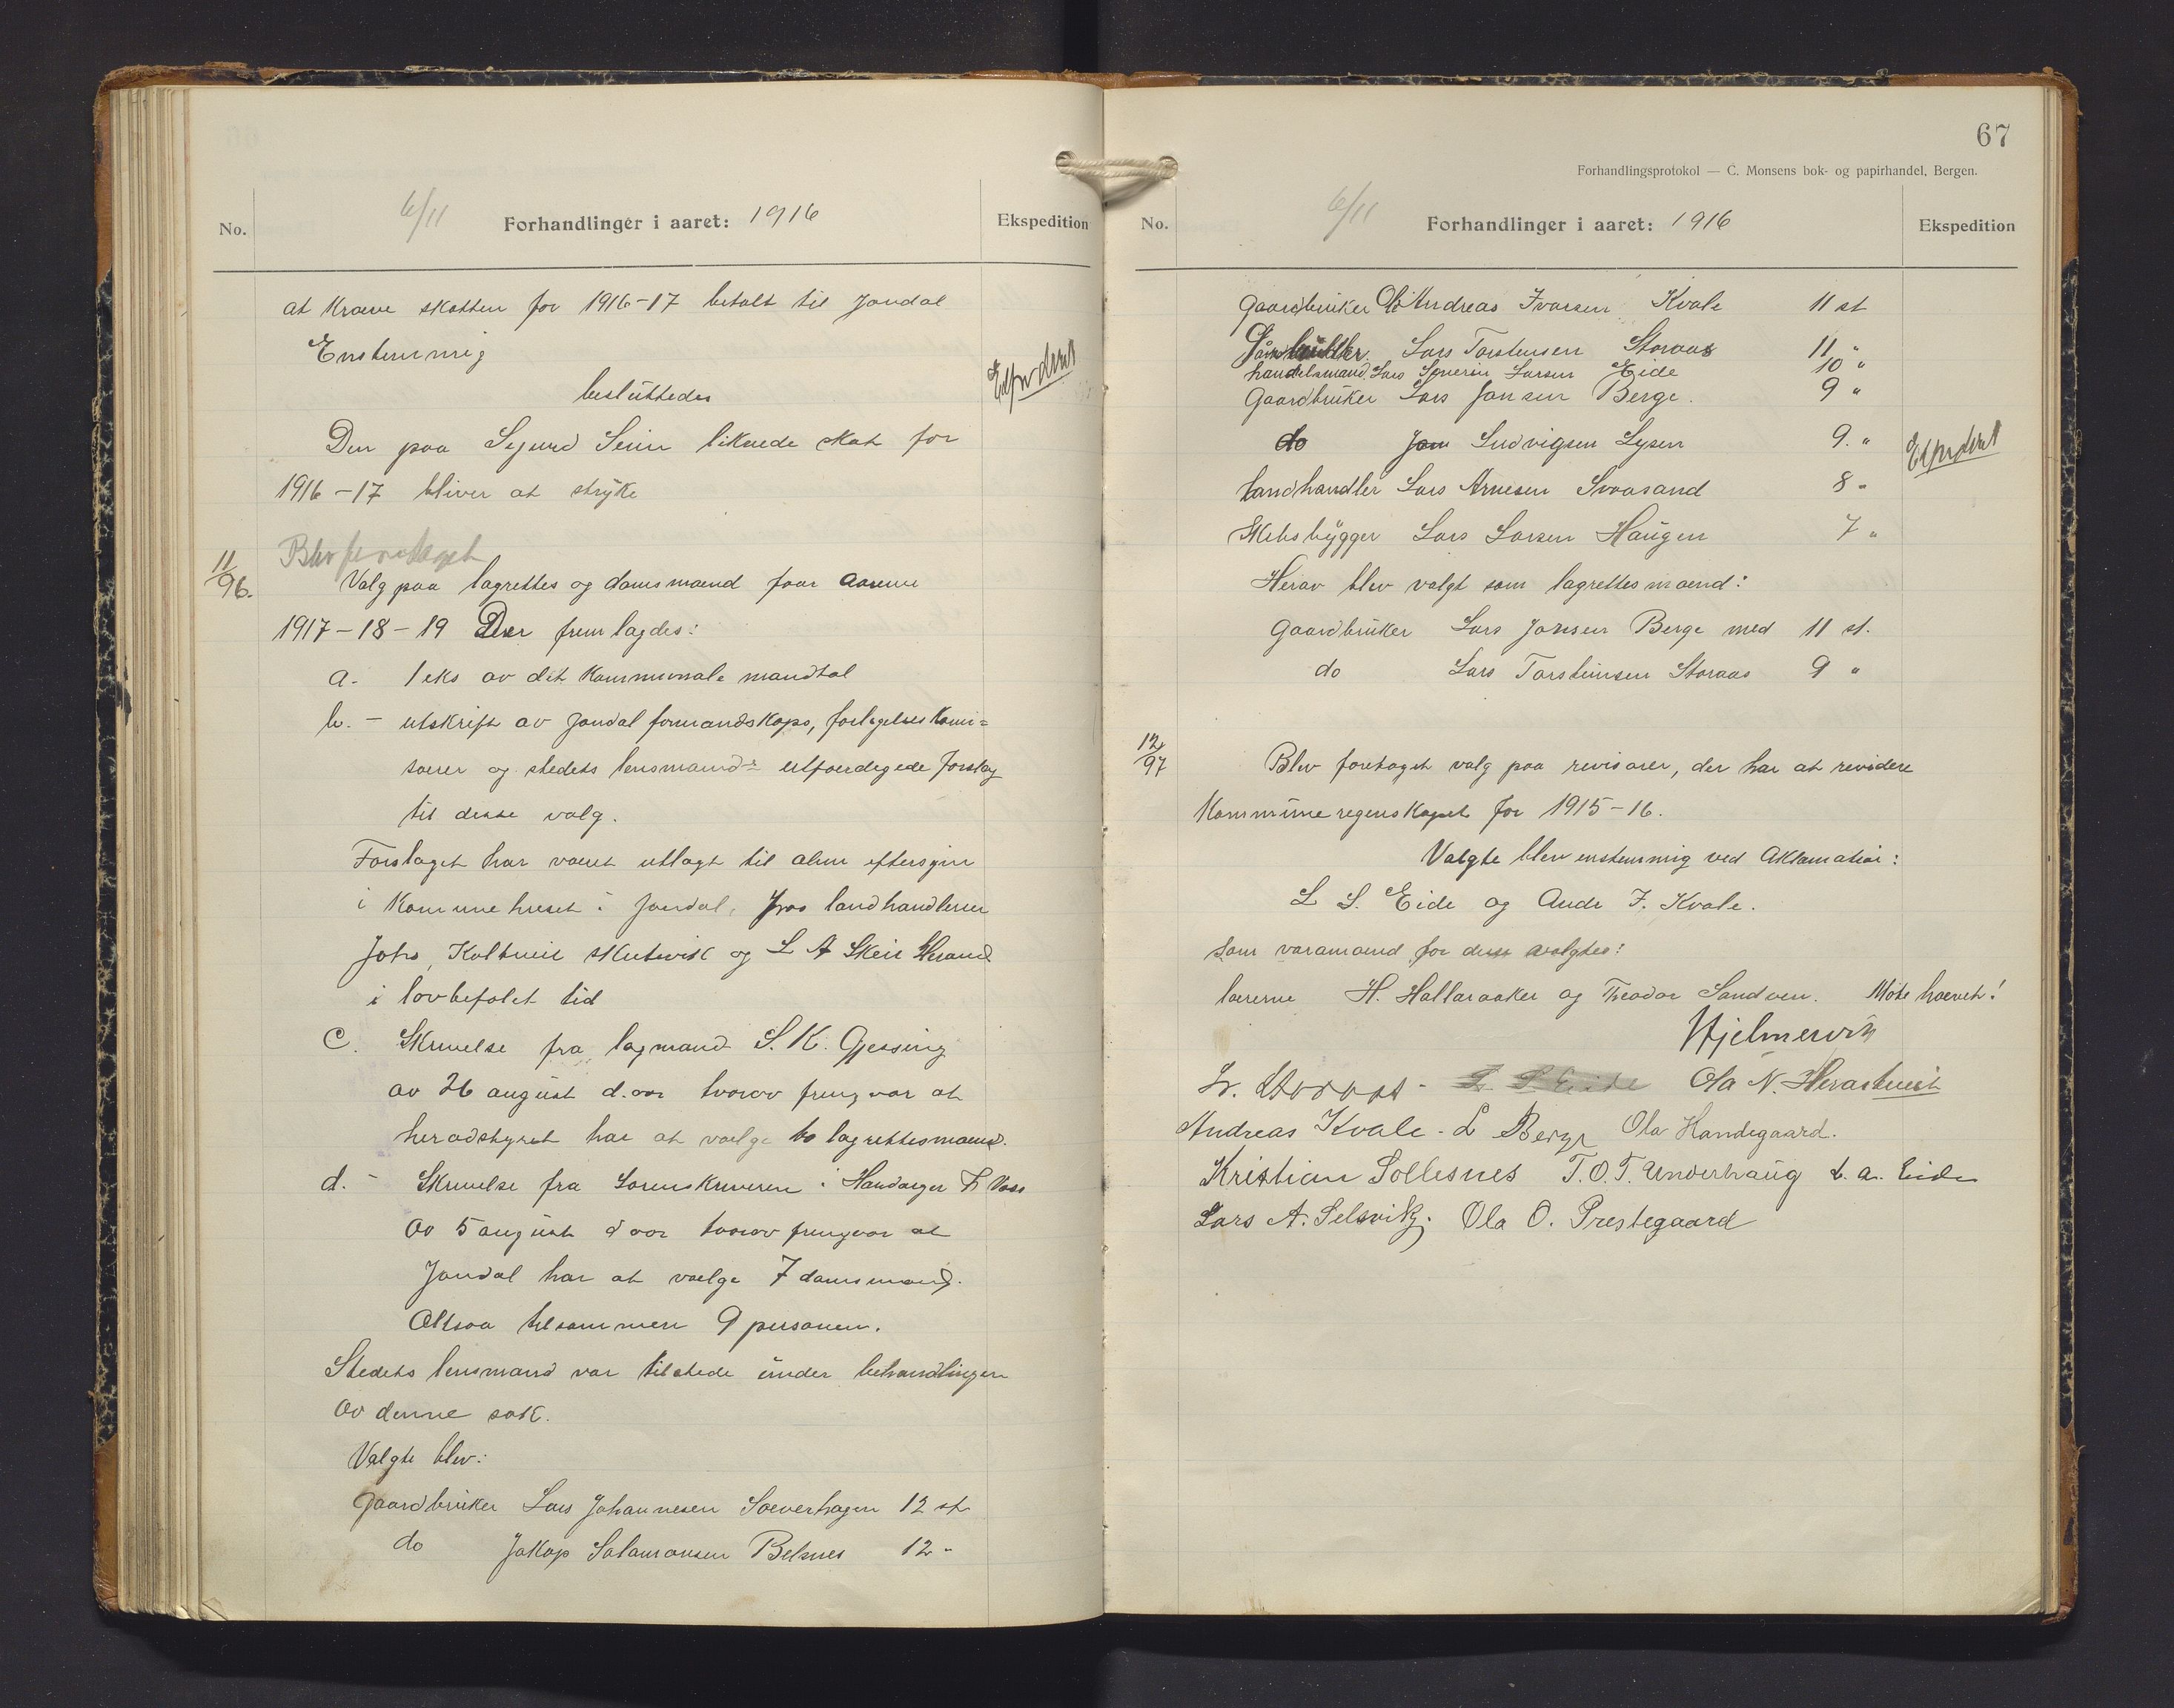 No.
6/11
Forhandlinger i aaret: 1916
Ekspedition
at kræve skatten for 1916-17 betalt til Jondal
Enstemmig
besluttedes
Expederet
Den paa Sejurd Seim liknede skat for
1916-17 bliver at stryke
11/96.
Blev foretaget
Valg paa lagrettes og domsmænd foor aarene
1917-18-19 Der fremlagdes:
a. 1 eks av det kommunale mandtal
b. - utskrift av Jondal formandskaps, forligelseskomi=
særer og stedets lensmands utfærdigede forslag
til disse valg.
Forslaget har været utlagt til alm eftersyn
i kommunehuset i Jondal, hos landhandlerne
Johs, Kolltveit Skutevik og L A Skeie Herand
i lovbefalet tid
c. Skrivelse fra lagmand S. K. Gjessing
av 26 august d. aar hvorav fremgaar at
heradstyret har at vælge to lagrettesmænd.
d. - Skrivelse fra Sorenskriveren i Hardanger & Voss
av 5 august d aar hvorav fremgaar at
Jondal har at vælge 7 domsmænd.
Altsaa tilsammen 9 personer.
Stedets lensmand var tilstede under behandlingen
av denne sak.
Valgte blev:
Gaardbruker Lars Johannesen Sæverhagen 12 st
do Jakop Salamonsen Belsnes 12 "
67
Forhandlingsprotokol — C. Monsens bok- og papirhandel, Bergen.
No.
6/11
Forhandlinger i aaret: 1916
Ekspedition
Gaardbruker Andreas Ivarsen Kvale 11 st
Lars Torsteinsen Storaas 11 "
handelsmand Lars Severin Larsen Eide 10 "
Gaardbruker Lars Jonsen Berge. 9 "
do Jon Ludvigsen Lysen 9. "
Expederet
landhandler Lars Arnesen Svaasand 8 "
Skibsbygger Lars Larsen Haugen 7 "
Herav blev valgt som lagrettesmænd:
Gaardbruker Lars Jonsen Berge med 11 st.
do Lars Torsteinsen Storaas 9 "
12/97
Blev foretaget valg paa revisorer, der har at revidere
Kommuneregenskapet for 1915-16.
Valgte blev enstemmig ved Aklamation:
L S. Eide og Andr I. Kvale.
Som varamænd for disse valgtes:
lærerne H. Hallaraaker og Theodor Sandven. Møte hævet!
Hjelmervik
Lr. Storaas - L. S. Eide Ola N. Herastveit
Andreas Kvale - L Berge Ola Handegaard.
Kristian Sollesnes T. O. T. Underhaug L. a. Eide
Lars A. Selsvik. Ola O. Prestegaard